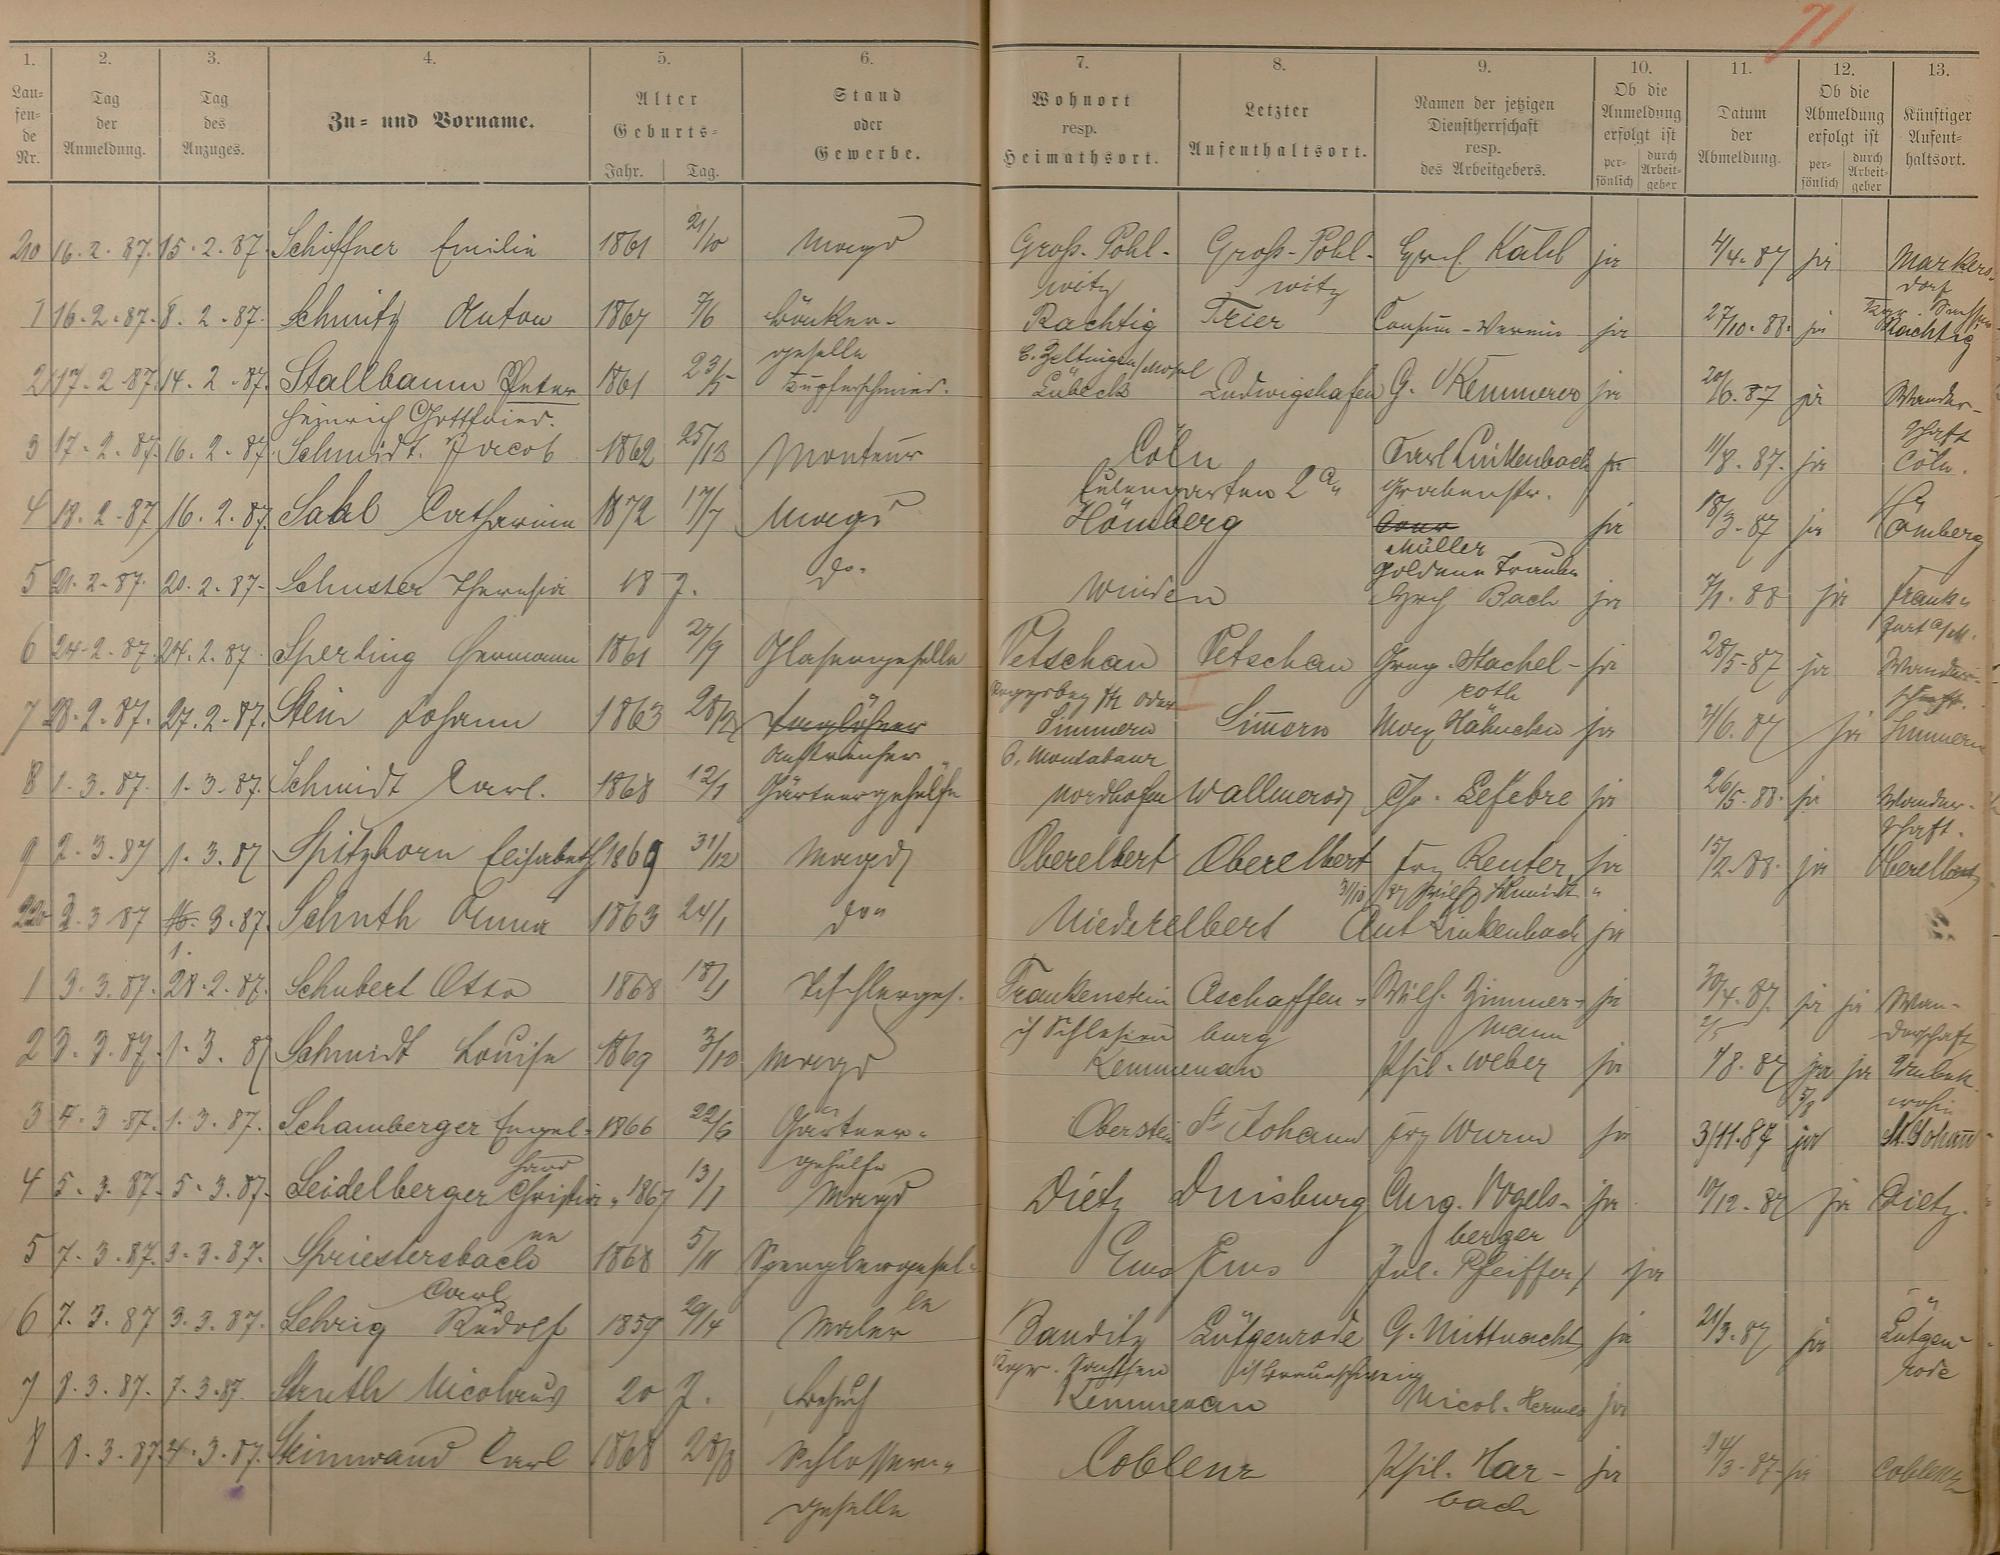 71
1. 2. 3. 4. 5. 6. 7. 8. 9. 10. 11. 12. 13.
Lau=
fen=
de
Nr.
Tag
der
Anmeldung.
Tag
des
Anzuges.
Zu= und Vorname.
Alter
Geburts=
Jahr. Tag.
Stand
oder
Gewerbe.
Wohnort
resp.
Heimathsort.
Letzter
Aufenthaltsort.
Namen der jetzigen
Dienstherrschaft
resp.
des Arbeitgebers.
Ob die
Anmeldung
erfolgt ist
per=
sönlich
durch
Arbeit=
geber
Datum
der
Abmeldung.
Ob die
Abmeldung
erfolgt ist
per=
sönlich
durch
Arbeit=
geber
Künftiger
Aufent=
haltsort.
210 16.2.87. 15.2.87. Schiffner Emilie 1861 21/10 Magd Groß-Pohl- Groß-Pohl- Kalb ja 4/4.87 ja Markers-
witz witz dorf
1 16.2.87. 8.2.87. Schmitz Anton 1867 7/6 Bäcker- Rachtig Trier Consum-Verein ja 27/10.88. ja Rachtig
geselle b. Zeltingen/Mosel
2 17.2.87. 14.2.87. Stallbaum Peter 1861 23/5 Kupferschmied. Lübeck Ludwigshafen G. Kemmerer ja 20/6.87 ja Wander-
Heinrich Gottfried. schaft
3 17.2.87. 16.2.87. Schmidt Jacob 1862 25/12 Monteur Cöln Carl Linkenbach ja 11/8.87. ja Cöln.
Eulengarten 2 Grabenstr.
4 18.2.87 16.2.87. Sahl Catharina 1872 17/7 Magd Hömberg ja 18/3.87 ja Hömberg
Müller
goldene Traube
5 21.2.87. 20.2.87. Schuster Theresia 18 J. do. Winden Bach ja 7/1.88 ja Frank-
furt a/M.
6 24.2.87. 24.2.87. Sperling Hermann 1861 27/9 Glasergeselle Vetschau Vetschau Georg Stachel- ja 28/5.87 ja Wander-
roth schaft.
7 28.2.87. 27.2.87. Stein Johann 1863 28/2 Taglöhner Simmern Simmern Hähnchen ja 21/6.87 ja Simmern
Anstreicher b. Montabaur
8 1.3.87. 1.3.87. Schmidt Carl. 1868 12/1 Gärtnergehülfe Nordhofen Wallmerod Chr. Lefebre ja 26/5.88. ja Wander-
schaft.
9 2.3.87 1.3.87 Spitzhorn Elisabeth 1869 31/12 Magd Oberelbert Oberelbert Frz Reuter ja 15/2.88. ja Oberelbert
Schmidt
220 2.3.87 3.87. Schuth Anna 1863 24/1 do. Niederelbert Ant Linkenbach ja
1.
1 3.3.87. 28.2.87. Schubert Otto 1868 18/1 Tischlerges. Frankenstein Aschaffen- Wilh. Zimmer- ja 30/4.87. ja ja Wan-
i/ Schlesien burg mann 2/5 derschaft
2 3.3.87. 1.3.87 Schmidt Louise 1869 3/10 Magd Kemmenau Phil. Weber ja 7/8.87 ja ja Unbek.
5/8 wohin
3 4.3.87. 1.3.87. Schamberger Engel- 1866 22/6 Gärtner- Oberstein St Johann Frz Wurm ja 3/11.87 ja St. Johann
hard gehülfe
4 5.3.87. 5.3.87. Seidelberger Christia- 1867 13/1 Magd Dietz Duisburg Aug. Vogels- ja 10/12.87 ja Dietz.
ne berger
5 7.3.87. 3.3.87. Spriestersbach 1868 5/11 Spenglergesel- Ems Ems Jul. Pfeiffer ja
Carl le
6 7.3.87 3.3.87. Sehrig Rudolf 1859 29/4 Maler Banditz Lütgenrode G. Mittnacht ja 21/3.87 ja Lütgen-
Kgr. Sachsen i/ Braunschweig rode
7 8.3.87. 7.3.87. Struth Nicolaus 20 J. Besuch Kemmenau Nicol. Hermes ja
8 8.3.87. 4.3.87. Steinwand Carl 1868 28/8 Schlosser- Coblenz Phil. Har- ja 14/3.87 ja Coblenz
geselle bach